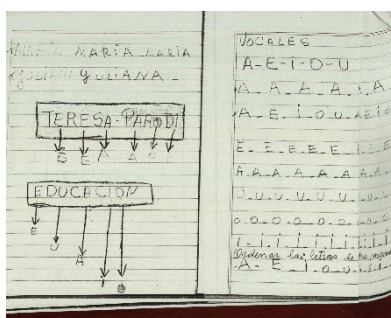 MARÍA MARÍA MARÍA
YULIANA YULIANA
TERESA-PARODI
E E A A O I
EDUCACIÓN
E U A I O
VOCALES
A-E-I-O-U
A A A A A A
A-E-I-O-U A E I O
E-E-E-E-E-E-E
A-A-A-A-A-A-A-A
U-U-U-U-U-U-U
O-O-O-O-O-O-O-O
I-I-I-I-I-I-I-I
Ordenar las letras
A-E-I-O-U